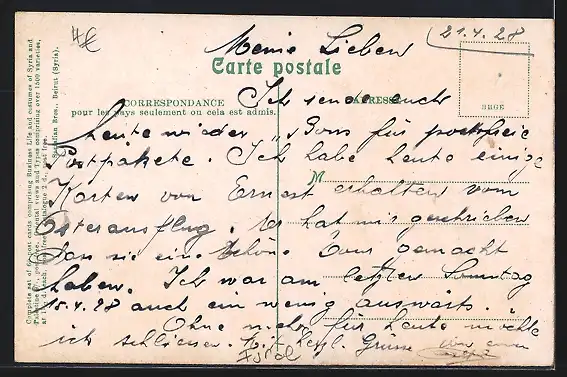 4€
21.4.28
Meine Lieben
Carte postale
CORRESPONDANCE
ADRESSE
pour les pays seulement ou cela est admis.
Ich sende euch
heute wieder "Bons für portofreie
Postpakete. Ich habe heute einige
Karten von Ernest erhalten vom
Osterausflug. Er hat mir geschrieben
dass sie eine schöne Tour gemacht
haben. Ich war am letzten Sonntag
15.4.28 auch ein wenig auswärts.
Ohne mehr für heute möchte
ich schliessen. Mit herzl. Grüsse von euer
Complete set of fine post cards comprising Business Life and costumes of Syria and
Bros., Beirut (Syria).